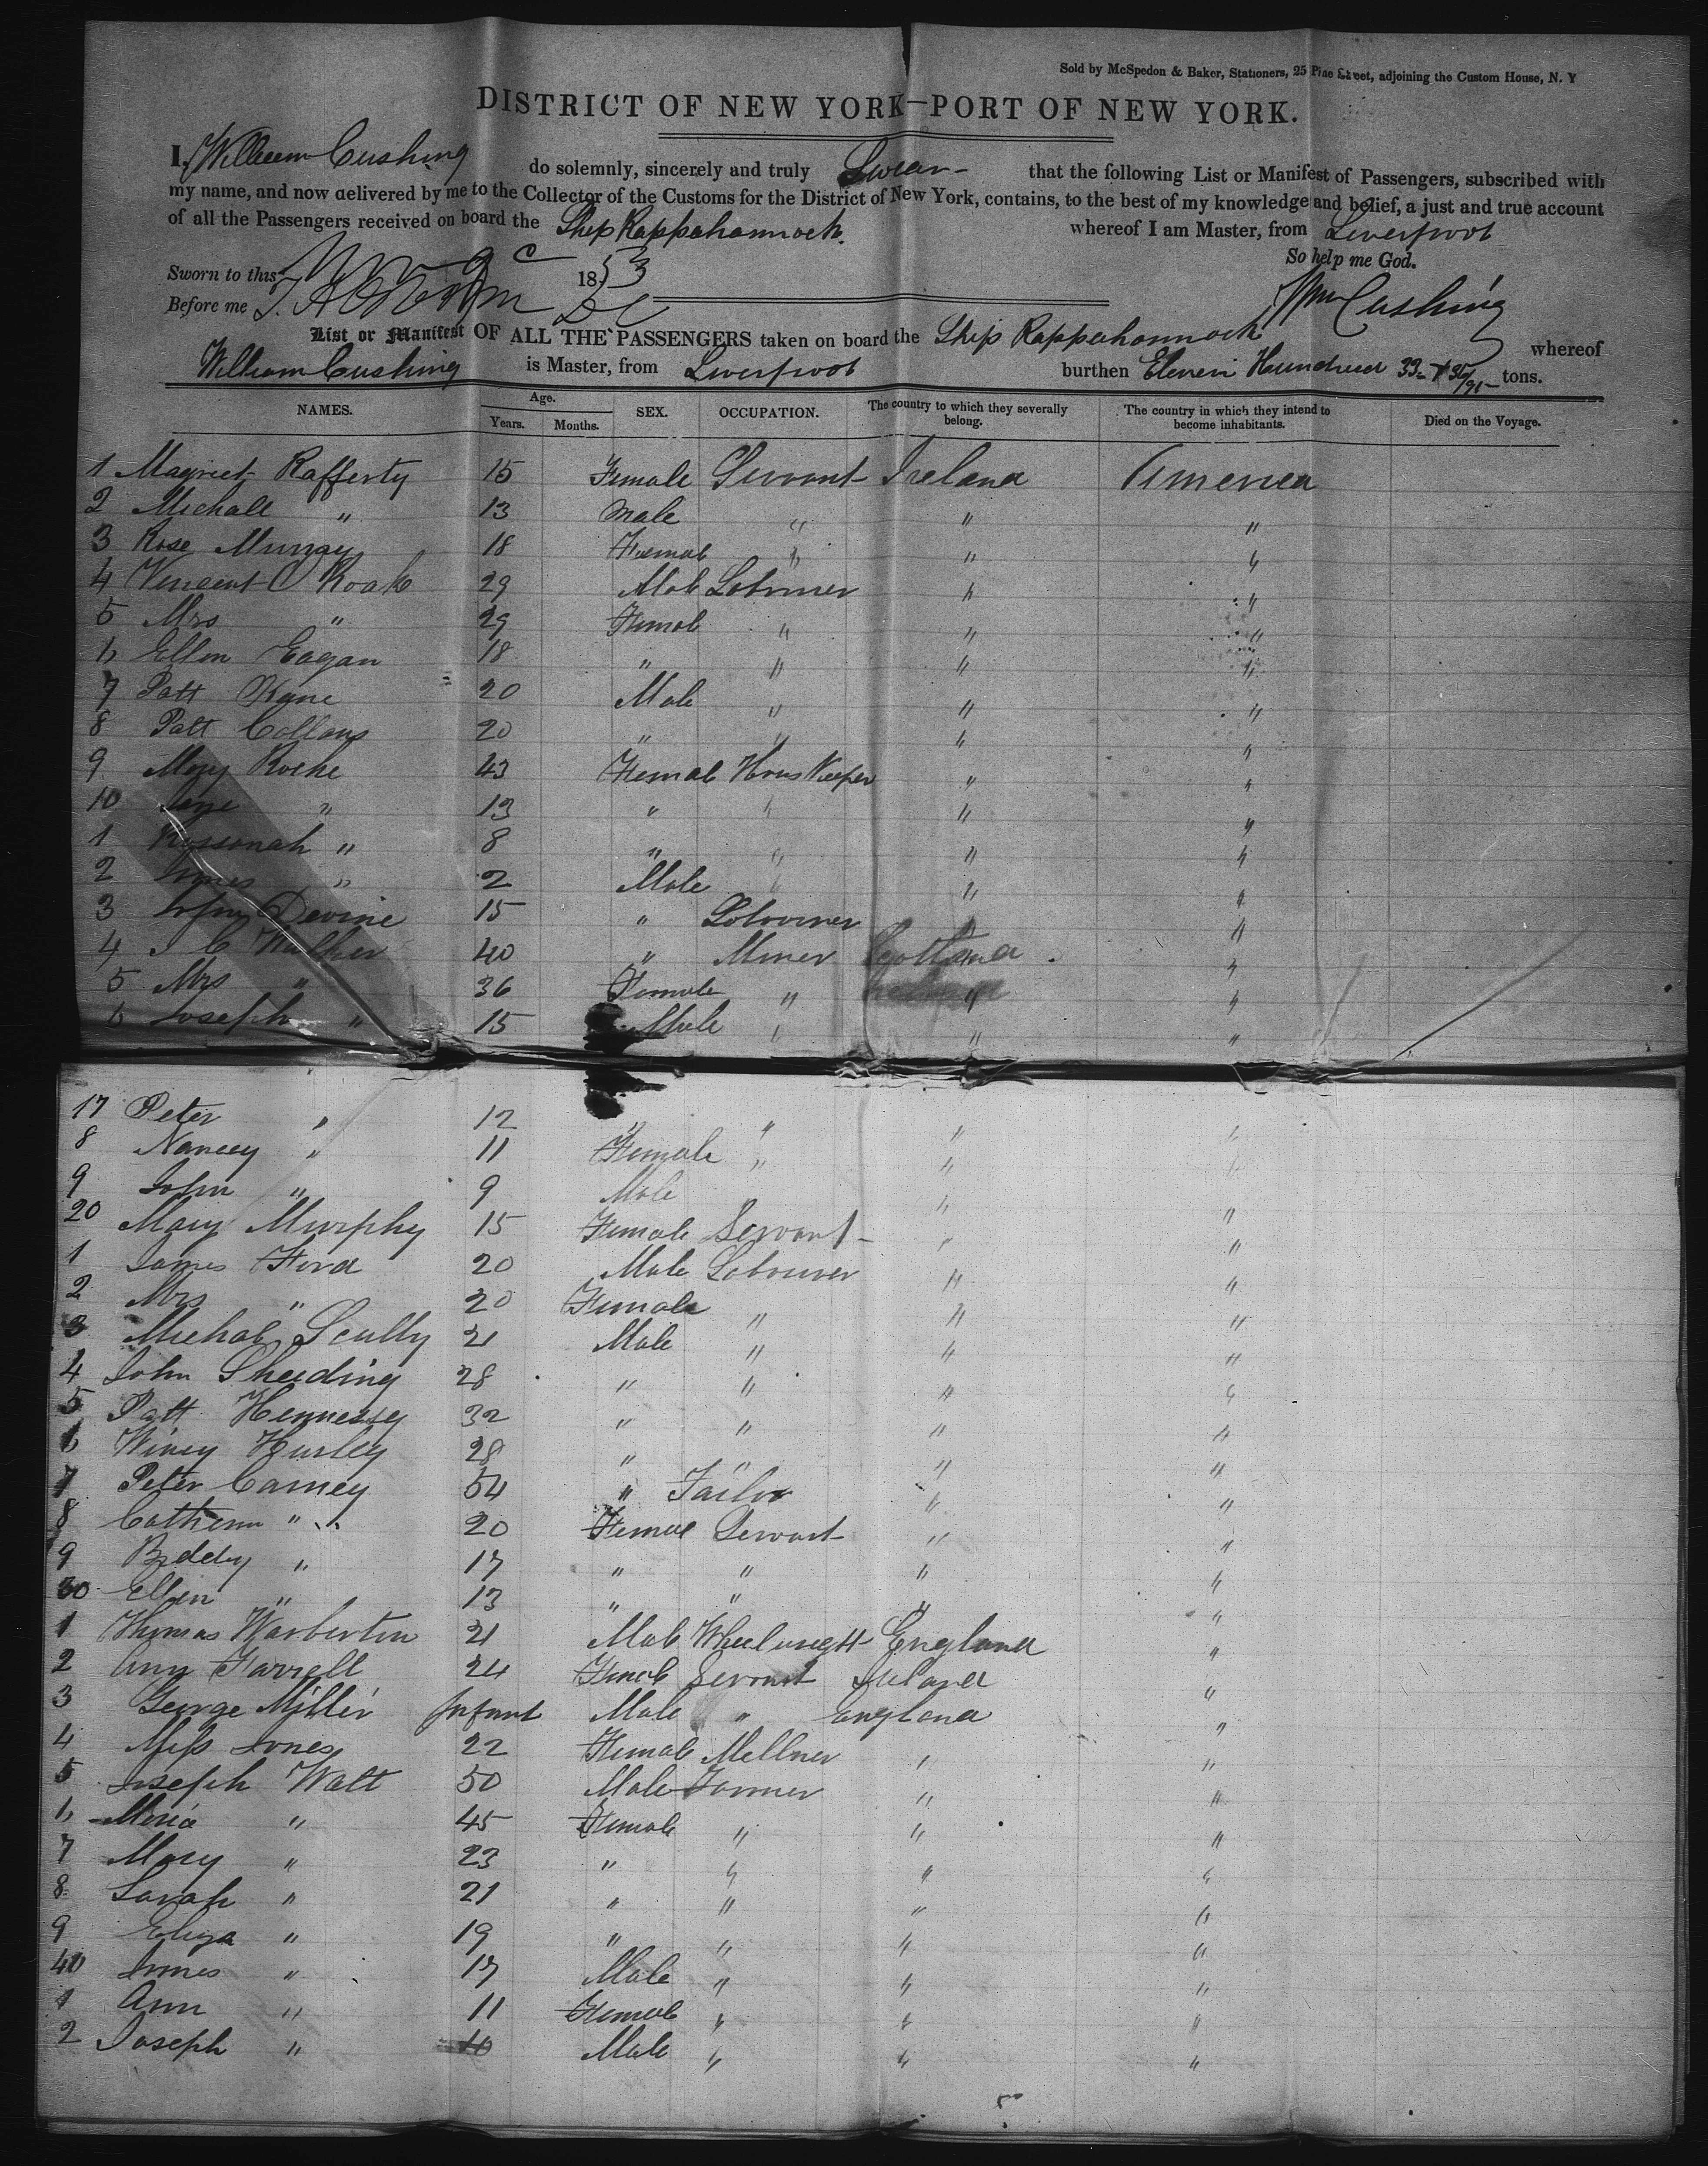 Sold by McSpedon & Baker, Stationers, 25 Pine Street, adjoining the Custom House, N. Y
DISTRICT OF NEW YORK—PORT OF NEW YORK.
I, William Cushing do solemnly, sincerely and truly Swear that the following List or Manifest of Passengers, subscribed with
my name, and now delivered by me to the Collector of the Customs for the District of New York, contains, to the best of my knowledge and belief, a just and true account
of all the Passengers received on board the Ship Rappahannock whereof I am Master, from Liverpool
So help me God.
Sworn to this Nov 9 1853
Before me Wm Cushing
List or Manifest OF ALL THE PASSENGERS taken on board the Ship Rappahannock whereof
William Cushing is Master, from Liverpool burthen Eleven Hundred 33 tons.
NAMES. Age. Years. Months. SEX. OCCUPATION. The country to which they severally belong. The country in which they intend to become inhabitants. Died on the Voyage.
1 Magriet Rafferty 15 Female Servant Ireland America
2 Michall " 13 Male " " "
3 Rose Murray 18 Female " " "
4 Vincent O Roak 29 Male Labourer " "
5 Mrs " 29 Female " " "
6 Ellen Eagan 18 " " " "
7 Patt Kyne 20 Male " " "
8 Patt Collans 20 " " " "
9 Mary Roche 43 Female Hous Keeper " "
10 Jane " 13 " " " "
1 Rossanah " 8 " " " "
2 James " 2 Male " " "
3 John Devine 15 " Labourer " "
4 J C Walker 40 " Miner Scotland "
5 Mrs " 36 Female " " "
6 Joseph " 15 Male " " "
17 Peter " 12 " " " "
8 Nancey " 11 Female " " "
9 John " 9 Male " "
20 Mary Murphy 15 Female Servant " "
1 James Ford 20 Male Labourer " "
2 Mrs " 20 Female " " "
3 Michal Scully 21 Male " " "
4 John Sheeding 28 " " " "
5 Patt Hennessy 32 " " " "
6 Winey Hurley 28 " " " "
7 Peter Carney 54 " Tailor " "
8 Catherin " 20 Female Servant " "
9 Biddy " 17 " " " "
30 Ellen " 13 " " " "
1 Thomas Warberton 21 Male Wheelwright England "
2 Ann Farrell 24 Female Servant Ireland "
3 George Miller Infant Male " England "
4 Miss Jones 22 Female Mellner " "
5 Joseph Watt 50 Male Farmer " "
6 Maria " 45 Female " " "
7 Mary " 23 " " " "
8 Sarah " 21 " " " "
9 Eliza " 19 " " " "
40 James " 17 Male " " "
1 Ann " 11 Female " " "
2 Joseph " 10 Male " " "